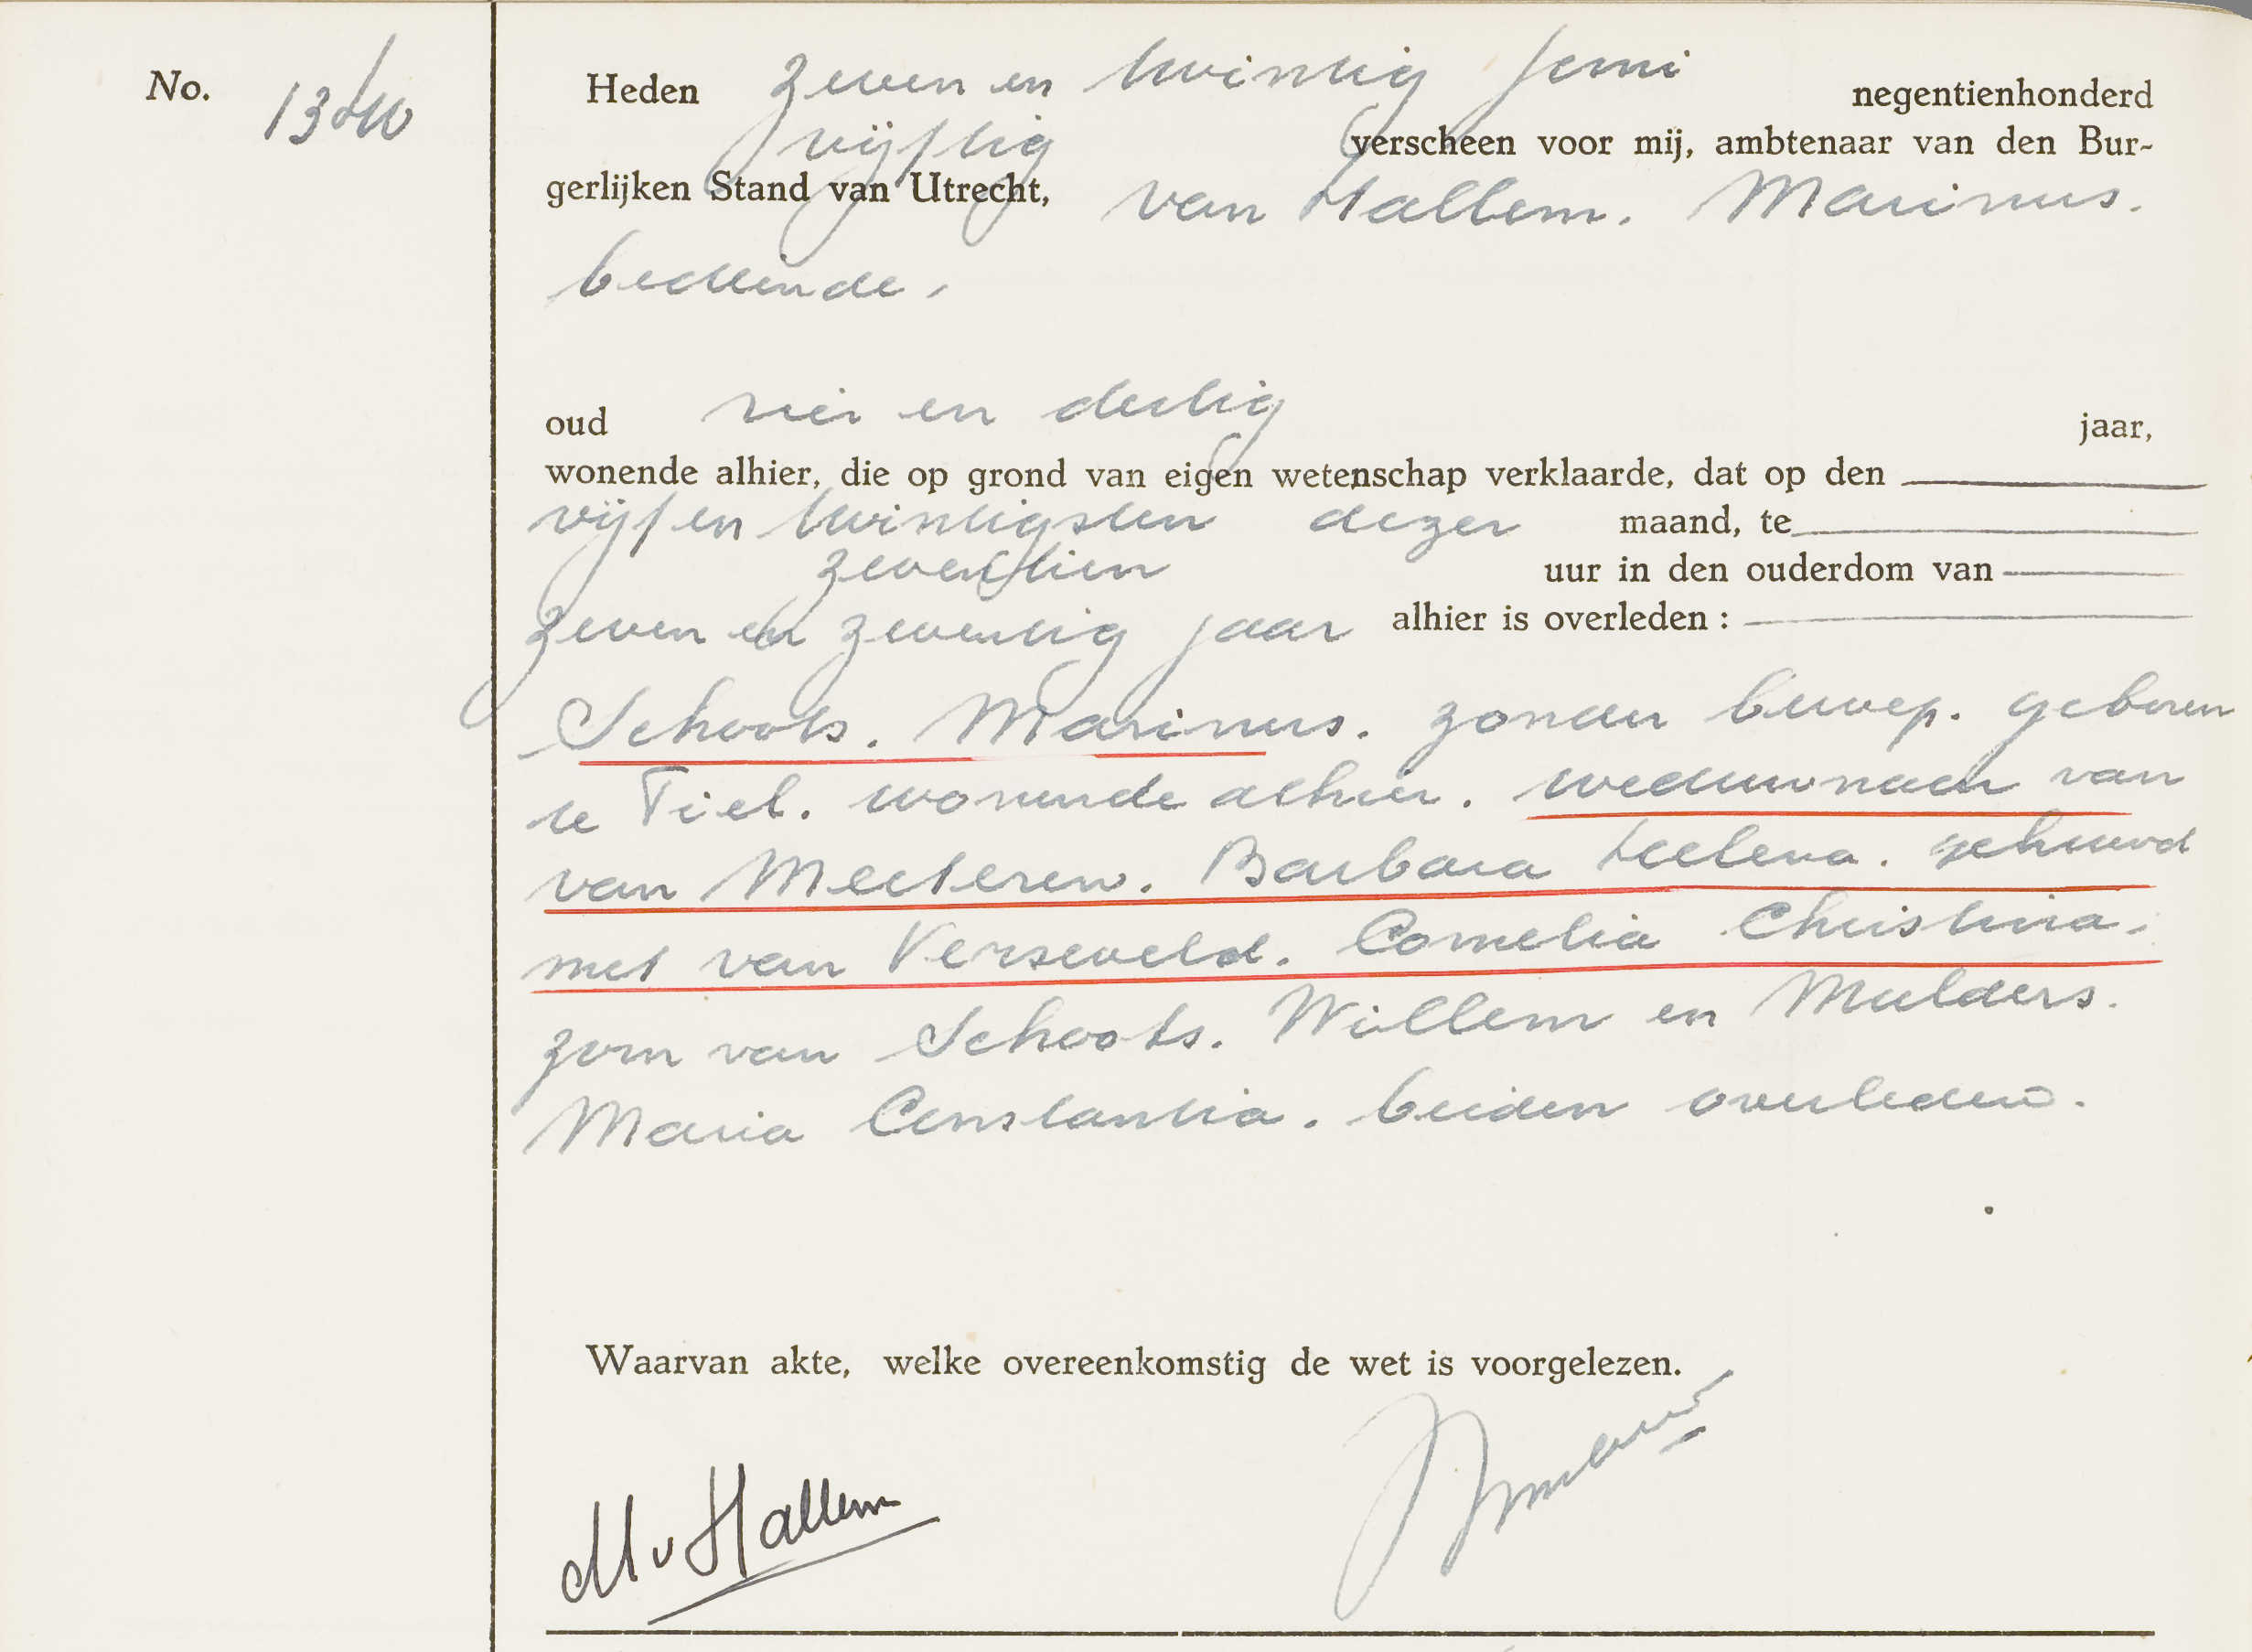 No. 1340
Heden zeven en twintig Juni negentienhonderd
vijftig verscheen voor mij, ambtenaar van den Bur-
gerlijken Stand van Utrecht, van Hallem. Marinus.
bediende,
oud vier en dertig jaar,
wonende alhier, die op grond van eigen wetenschap verklaarde, dat op den
vijf en twintigsten dezer maand, te
zeventien uur in den ouderdom van
zeven en zeventig jaar alhier is overleden :
Schoots. Marinus. zonder beroep. geboren
te Tiel. wonende alhier. weduwnaar van
van Meeteren. Barbara Helena. gehuwd
met van Verseveld. Cornelia Christina.
zoon van Schoots. Willem en Mulders.
Maria Constantia. beiden overleden.
Waarvan akte, welke overeenkomstig de wet is voorgelezen.
M v Hallem